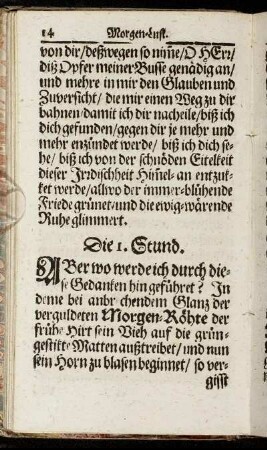 14 Morgen-Lust.
von dir/ deßwegen so nim̃e/ O HErr/
diß Opfer meiner Busse genädig an/
und mehre in mir den Glauben und
Zuversicht/ die mir einen Weg zu dir
bahnen/ damit ich dir nacheile/ biß ich
dich gefunden/ gegen dir je mehr und
mehr enzündet werde/ biß ich dich se-
he/ biß ich von der schnöden Eitelkeit
dieser Irdischheit Him̃el-an entzuk-
ket werde/ allwo der immer-blühende
Friede grünet/ und die ewig-wärende
Ruhe glimmert.
Die 1. Stund.
ABer wo werde ich durch die-
se Gedanken hin geführet? In
deme bei anbr chendem Glanz der
verguldeten Morgen-Röhte der
frühe Hirt sein Vieh auf die grün-
gestikte Matten außtreibet/ und nun
sein Horn zu blasen beginnet/ so ver-
gisst